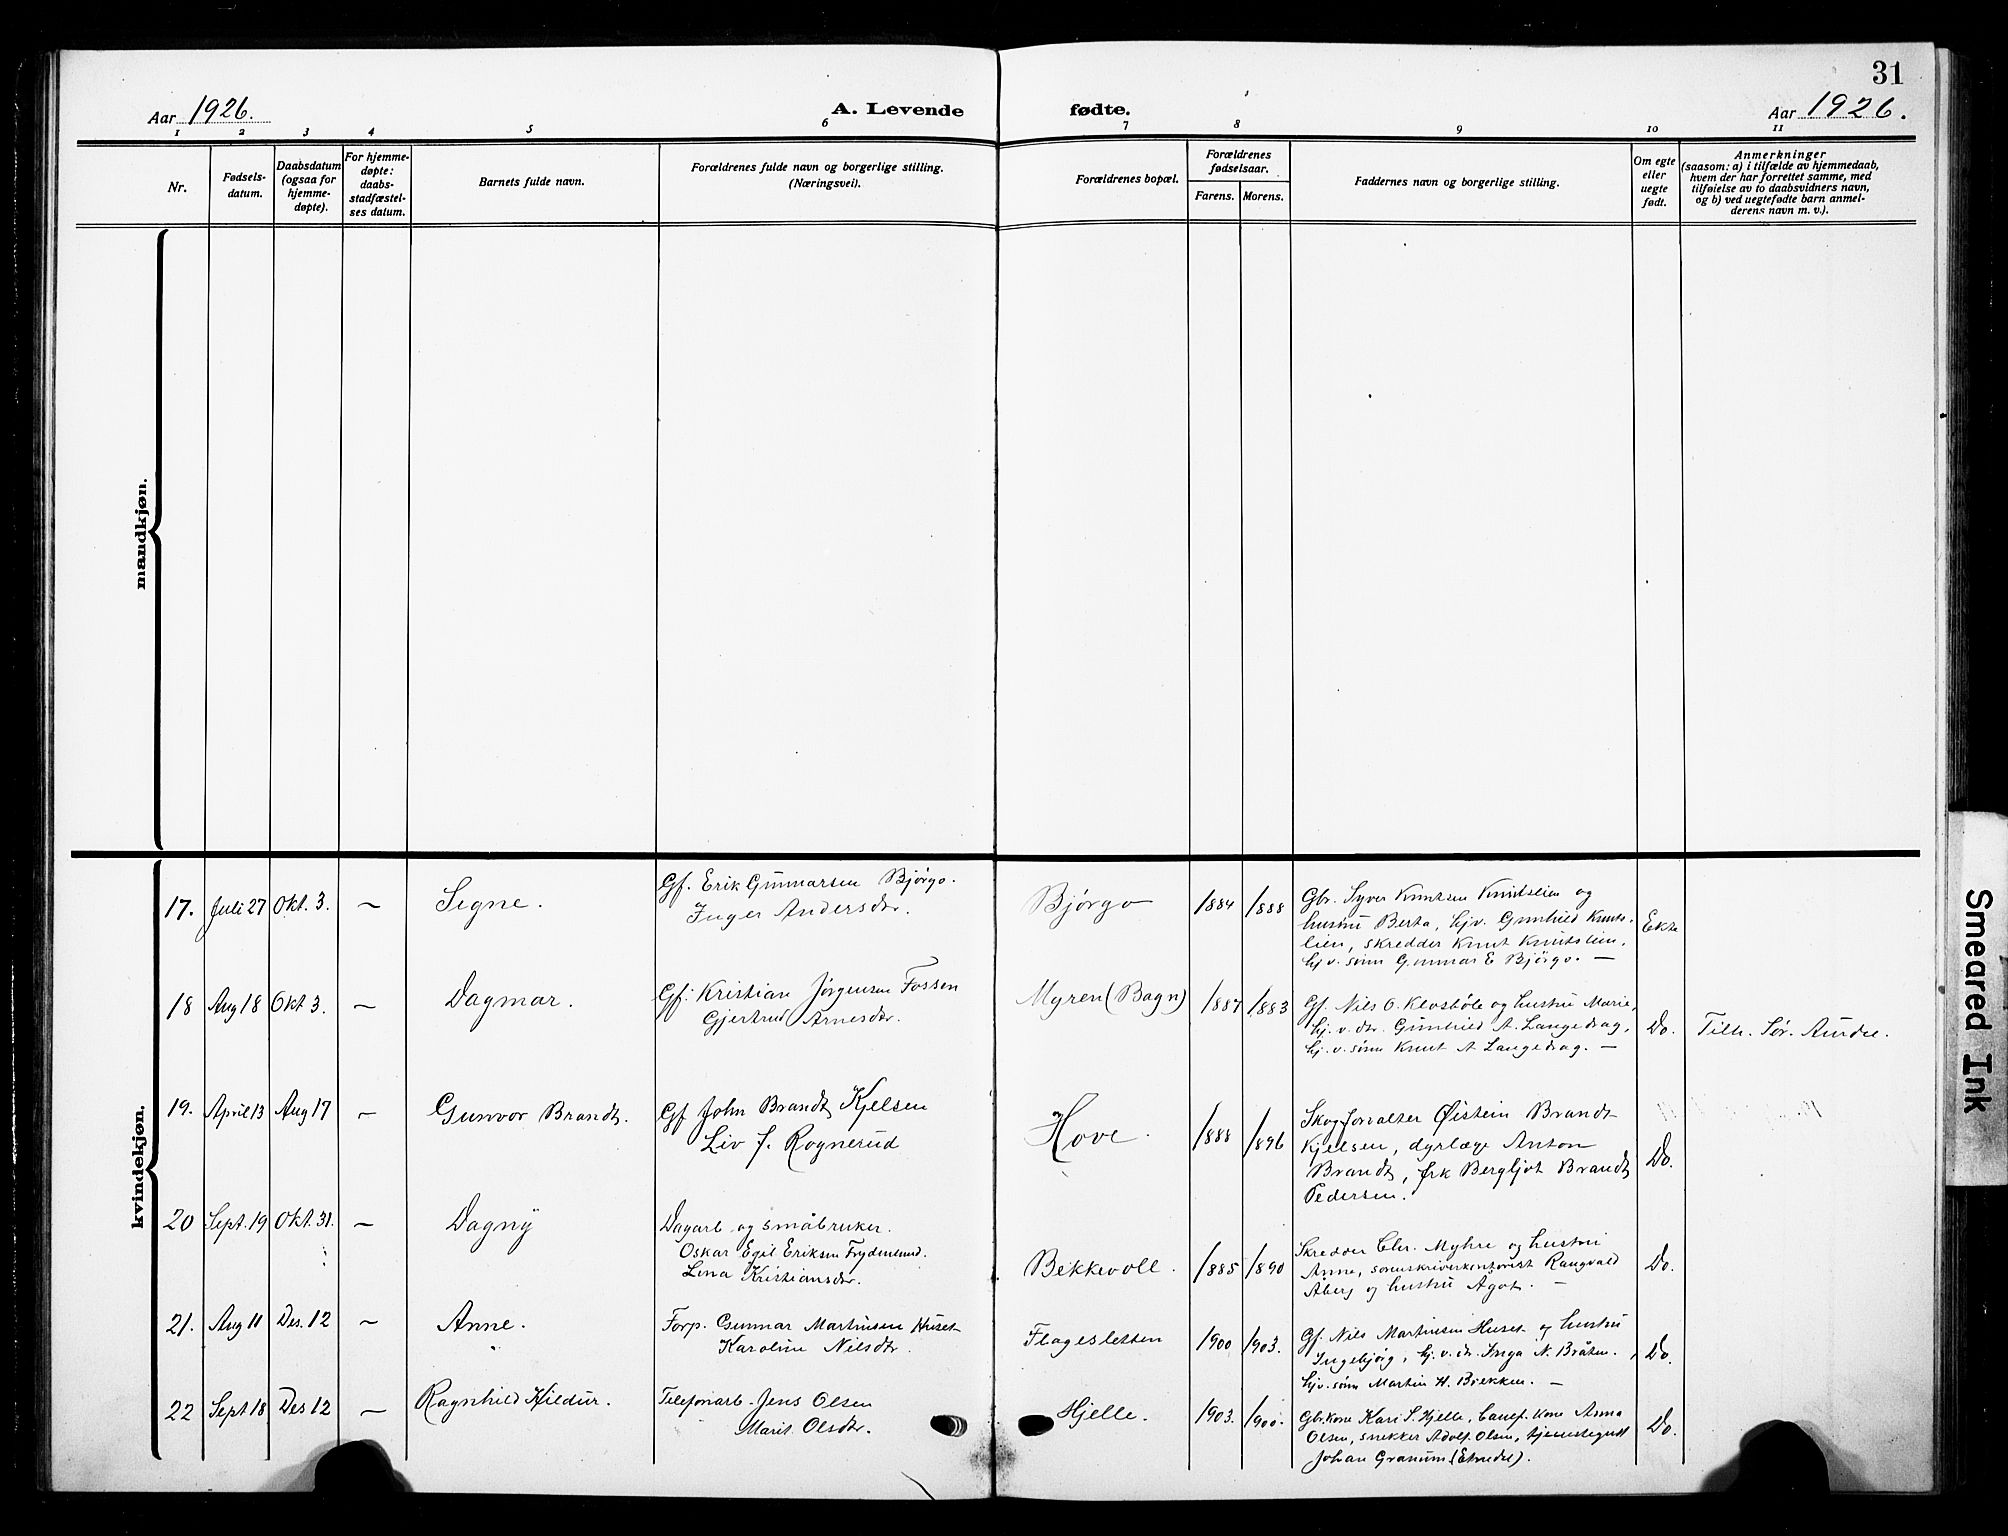 31
Aar 1926.
A. Levende fødte.
Aar 1926.
1 2 3 4 5 6 7 8 9 10 11
Nr.
Fødsels-
datum.
Daabsdatum
(ogsaa for
hjemme-
døpte).
For hjemme-
døpte:
daabs-
stadfæstel-
ses datum.
Barnets fulde navn.
Forældrenes fulde navn og borgerlige stilling.
(Næringsvei).
Forældrenes bopæl.
Forældrenes
fødselsaar.
Farens. Morens.
Faddernes navn og borgerlige stilling.
Om egte
eller
uegte
født.
Anmerkninger
(saasom: a) i tilfælde av hjemmedaab,
hvem der har forrettet samme, med
tilføielse av to daabsvidners navn,
og b) ved uegtefødte barn anmel-
derens navn m. v.).
mandkjøn.
kvindekjøn.
17. Juli 27 Okt. 3. — Signe.
Gf. Erik Gunnarsen Bjørgo.
Inger Andersdtr.
Bjørgo 1884 1888
Gbr. Syver Knutsen Knutslien og
hustru Berta, hjv. Gunhild Knuts-
lien, skredder Knut Knutslien,
hjv. sønn Gunnar E Bjørgo. —
Ekte
18 Aug 18 Okt 3. — Dagmar.
Gf. Kristian Jørgensen Fossen
Gjertrud Arnesdtr.
Myren (Bagn) 1887 1883
Gf. Nils O. Klosbøle og hustru Marie,
hj. v. dtr. Gunhild A. Langedrag,
hj. v. sønn Knut A Langedrag. —
Do. Tilh. Sør. Aurdal.
19. April 13 Aug 17 — Gunvor Brandt.
Gf John Brandt Kjelsen
Liv f. Rognerud
Hove. 1888 1896
Skogforvalter Øistein Brandt
Kjelsen, dyrlæge Anton
Brandt, frk Bergljot Brandt
Pedersen.
Do.
20 Sept. 19 Okt. 31. — Dagny
Dagarb og småbruker.
Oskar Egil Eriksen Frydenlund.
Lina Kristiansdtr.
Bekkevoll. 1885 1890
Skredder Chr. Myhre og hustru
Anne, sorenskriverkontorist Rangvald
Åberg og hustru Agot. —
Do.
21. Aug 11 Des. 12 — Anne.
Forp. Gunnar Martinsen Huset
Karoline Nilsdtr.
Flagesletten 1900 1903.
Gf. Nils Martinsen Huset og hustru
Ingebjørg, hj. v. dtr. Inga N. Bråten,
hjv. sønn Martin H. Brekken. —
Do.
22 Sept 18 Des 12 — Ragnhild Hildur.
Telefonarb. Jens Olsen
Marit Olsdtr.
Hjelle. 1903. 1900.
Gbr.kone Kari S. Hjelle, kone Anna
Olsen, snekker Adolf Olsen, tjenestegutt
Johan Granum (Etnedal).
Do.
Smeared Ink